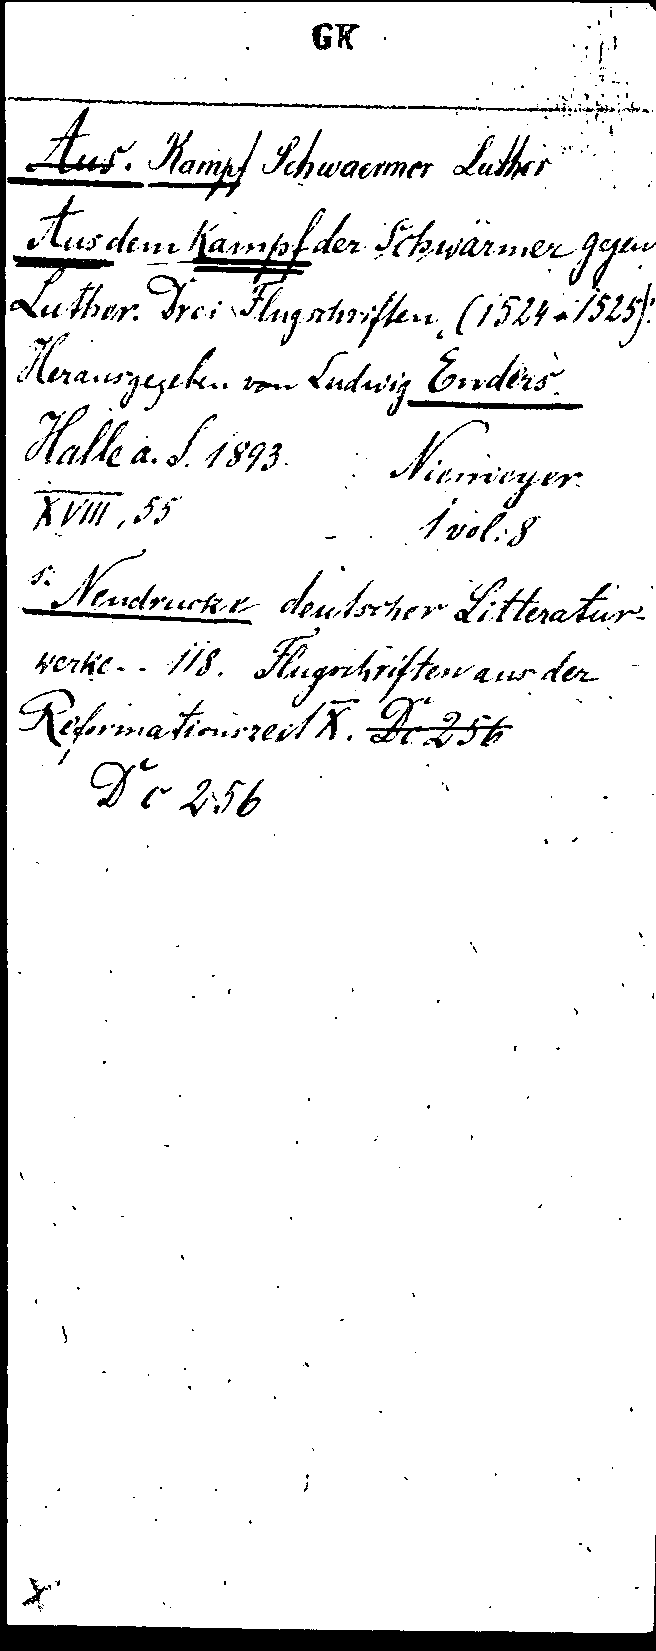 GK
Aus. Kampf Schwaermer Luther
Aus dem Kampf der Schwärmer gegen
Luther. Drei Flugschriften (1524 u 1525).
Herausgegeben von Ludwig Enders.
Halle a. S. 1893. Niemeyer.
XVIII, 55 1 vol: 8
s: Neudrucke deutscher Litteratur-
werke - . 118. Flugschriften aus der
Reformationszeit X. Dc 256
Dc 256
X